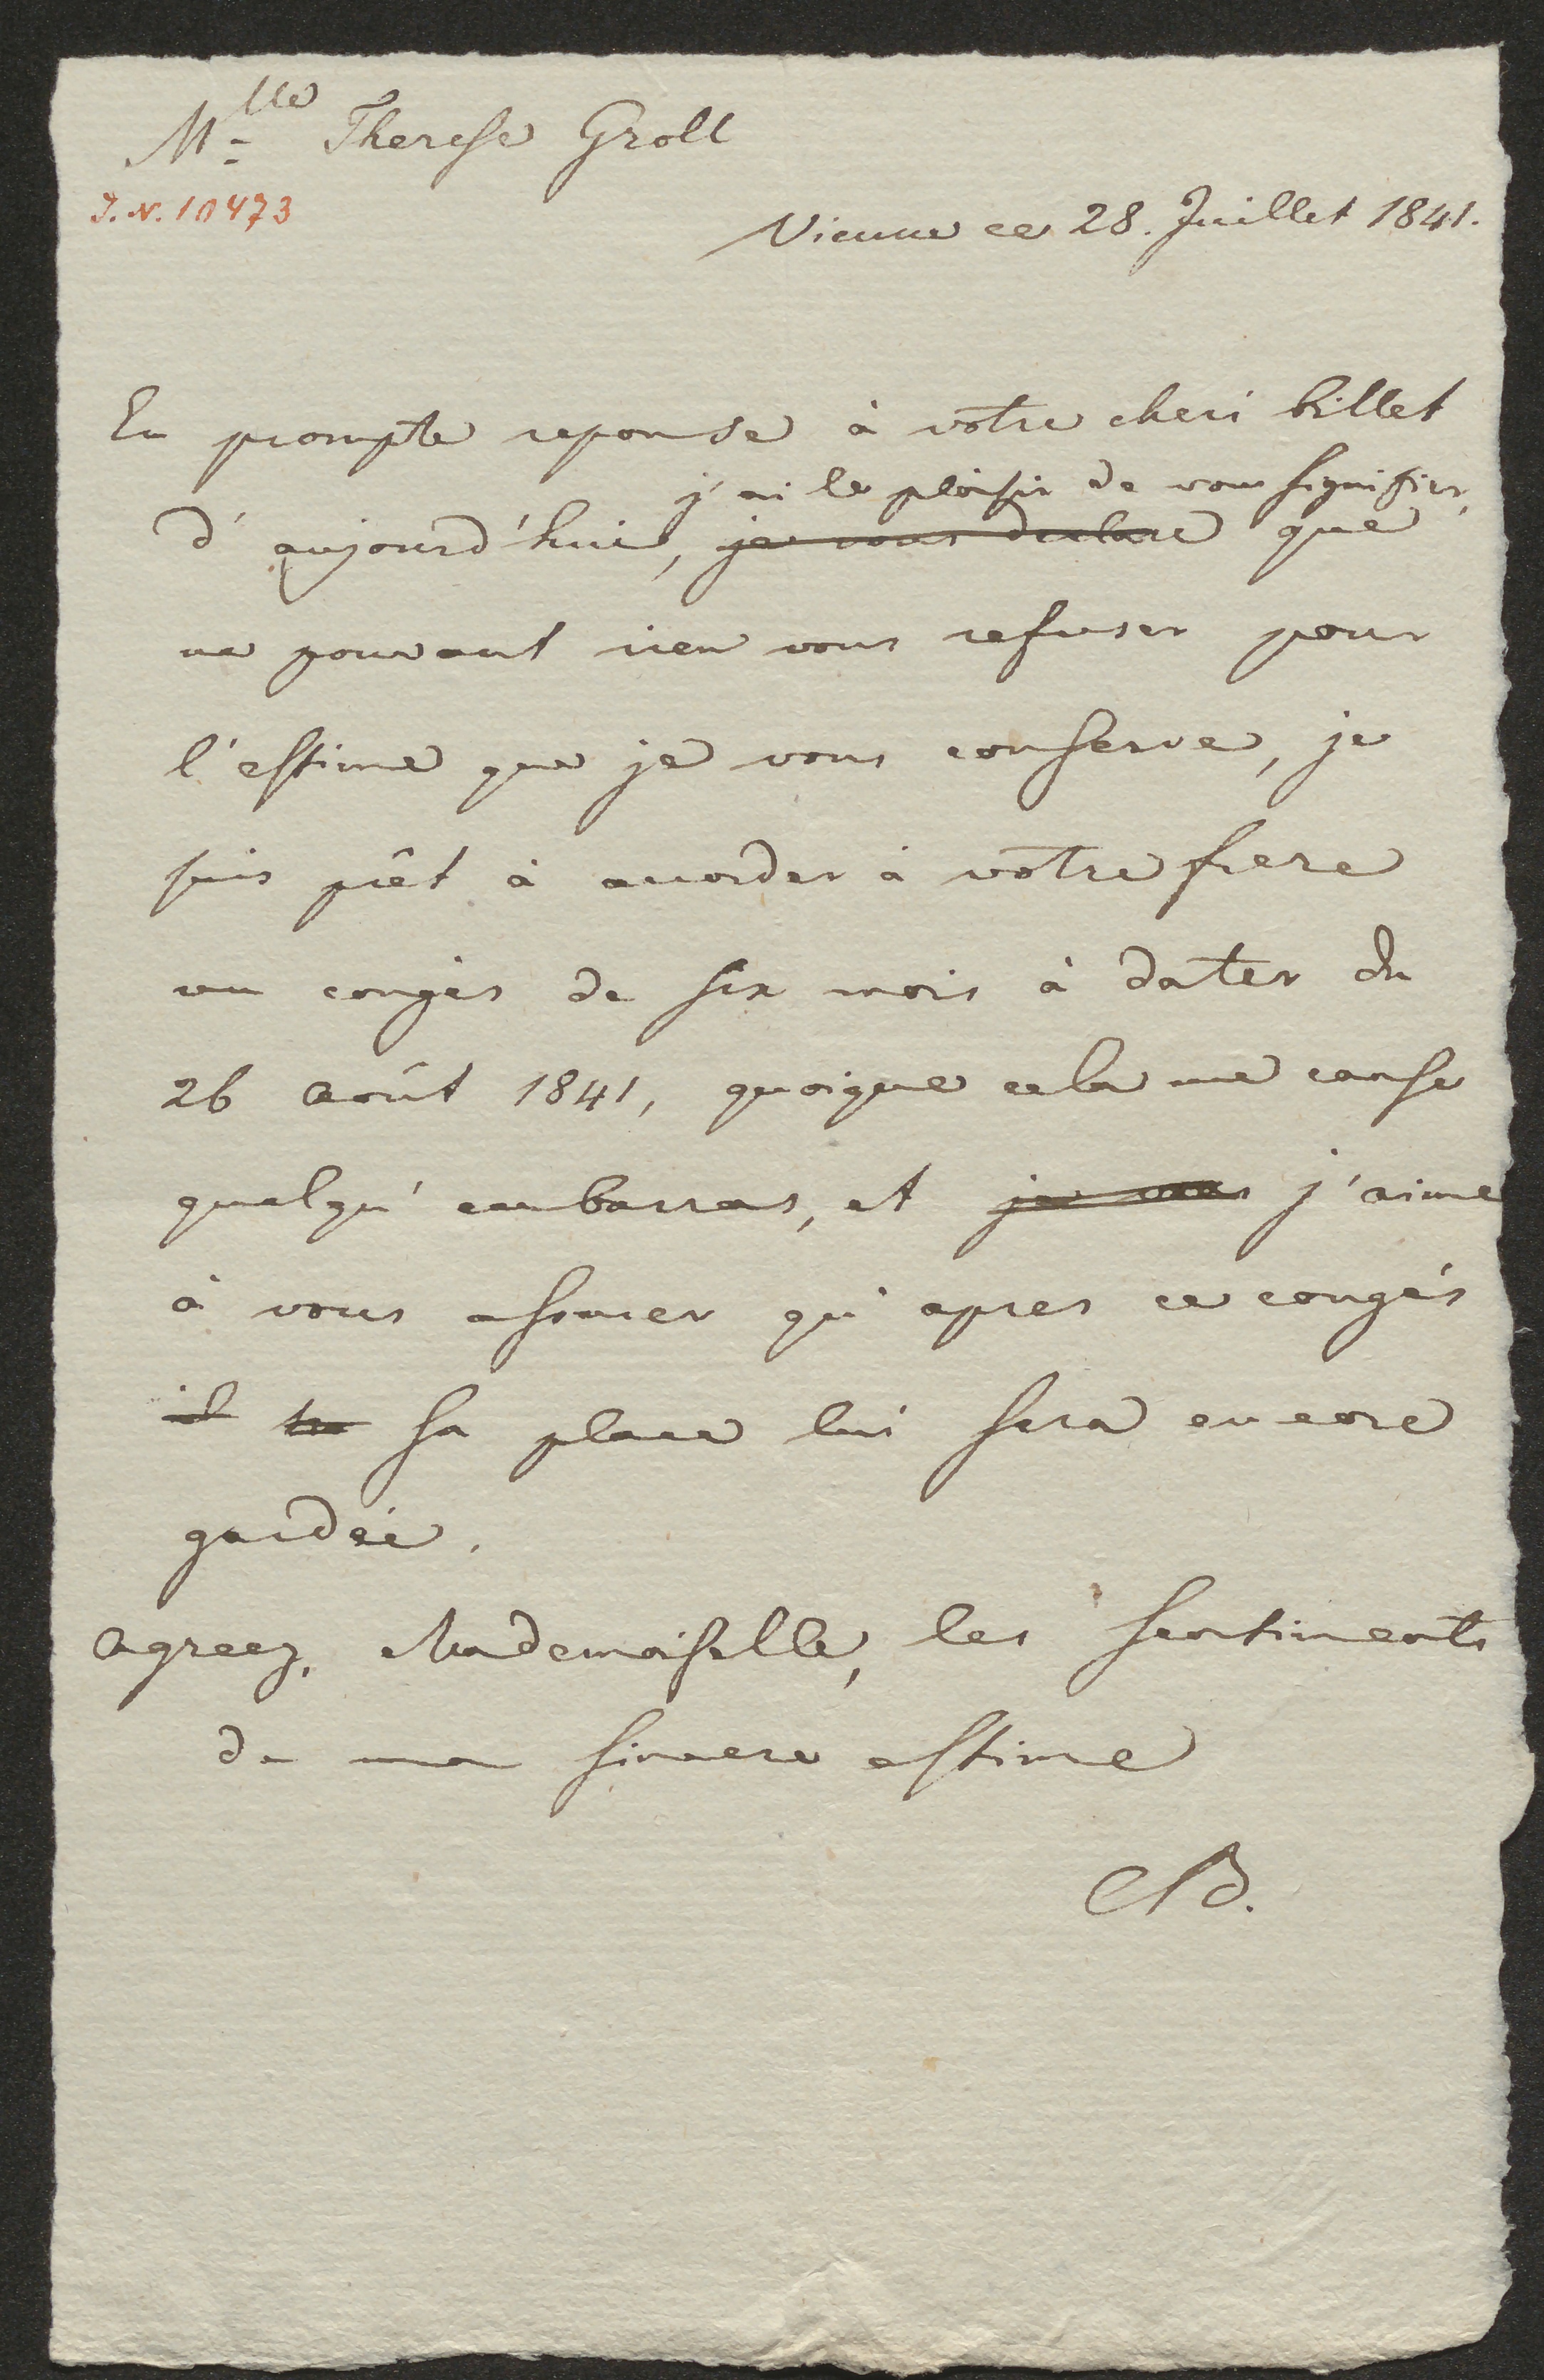 Mlle Therese Groll
I. N. 10473
Vienne ce 28. Juillet 1841.
En prompte reponse à votre cheri billet
j'ai le plaisir de vous signifier,
d'aujourd'hui, je vous declare que
ne pouvant rien vous refuser pour
l'estime que je vous conserve, je
suis prêt à accorder à votre frere
un congés de six mois à dater du
26 Août 1841, quoique cela me cause
quelqu'embarras, et je vous j'aime
à vous assurer qu'apres ce congés
il sa place lui sera encore
gardée.
Agreez, Mademoiselle, les sentiments
de ma sincere estime